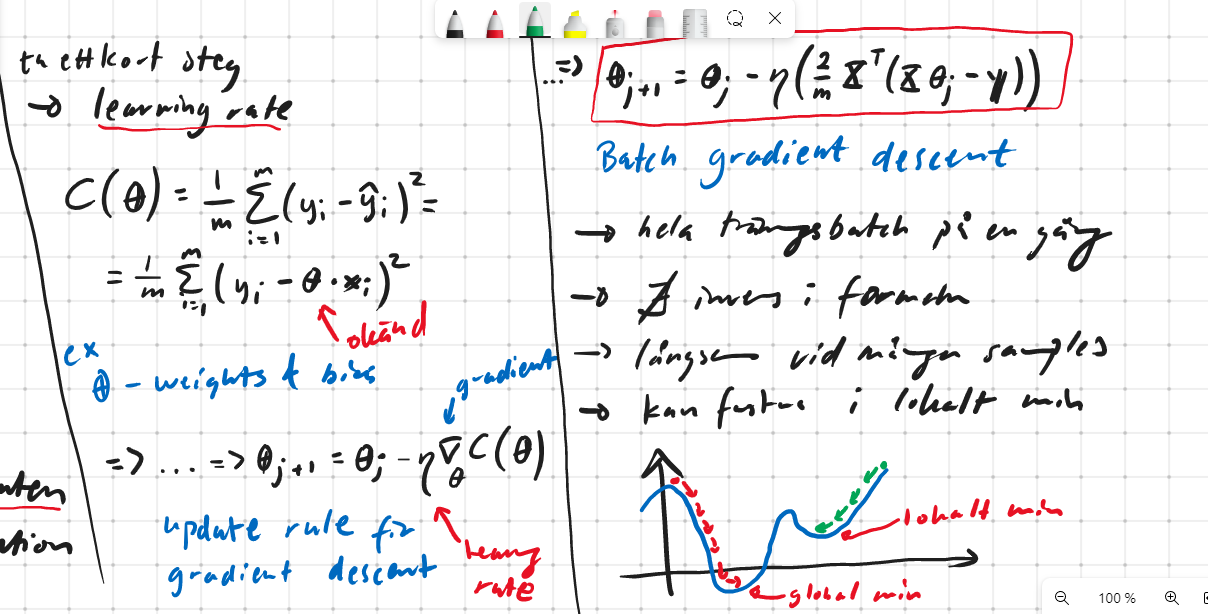 ta ett kort steg
→ learning rate
C(θ) = 1/m Σ_{i=1}^{m} (y_i - ŷ_i)² =
= 1/m Σ_{i=1}^{m} (y_i - θ · x_i)²
okänd
ex
θ - weights & bias
gradient
=> ... => θ_{j+1} = θ_j - η ∇_θ C(θ)
update rule för
gradient descent
learning
rate
...=> θ_{j+1} = θ_j - η(2/m X^T(Xθ_j - y))
Batch gradient descent
→ hela träningsbatch på en gång
→ ∄ invers i formeln
→ långsam vid många samples
→ kan fastna i lokalt min
lokalt min
global min
100 %